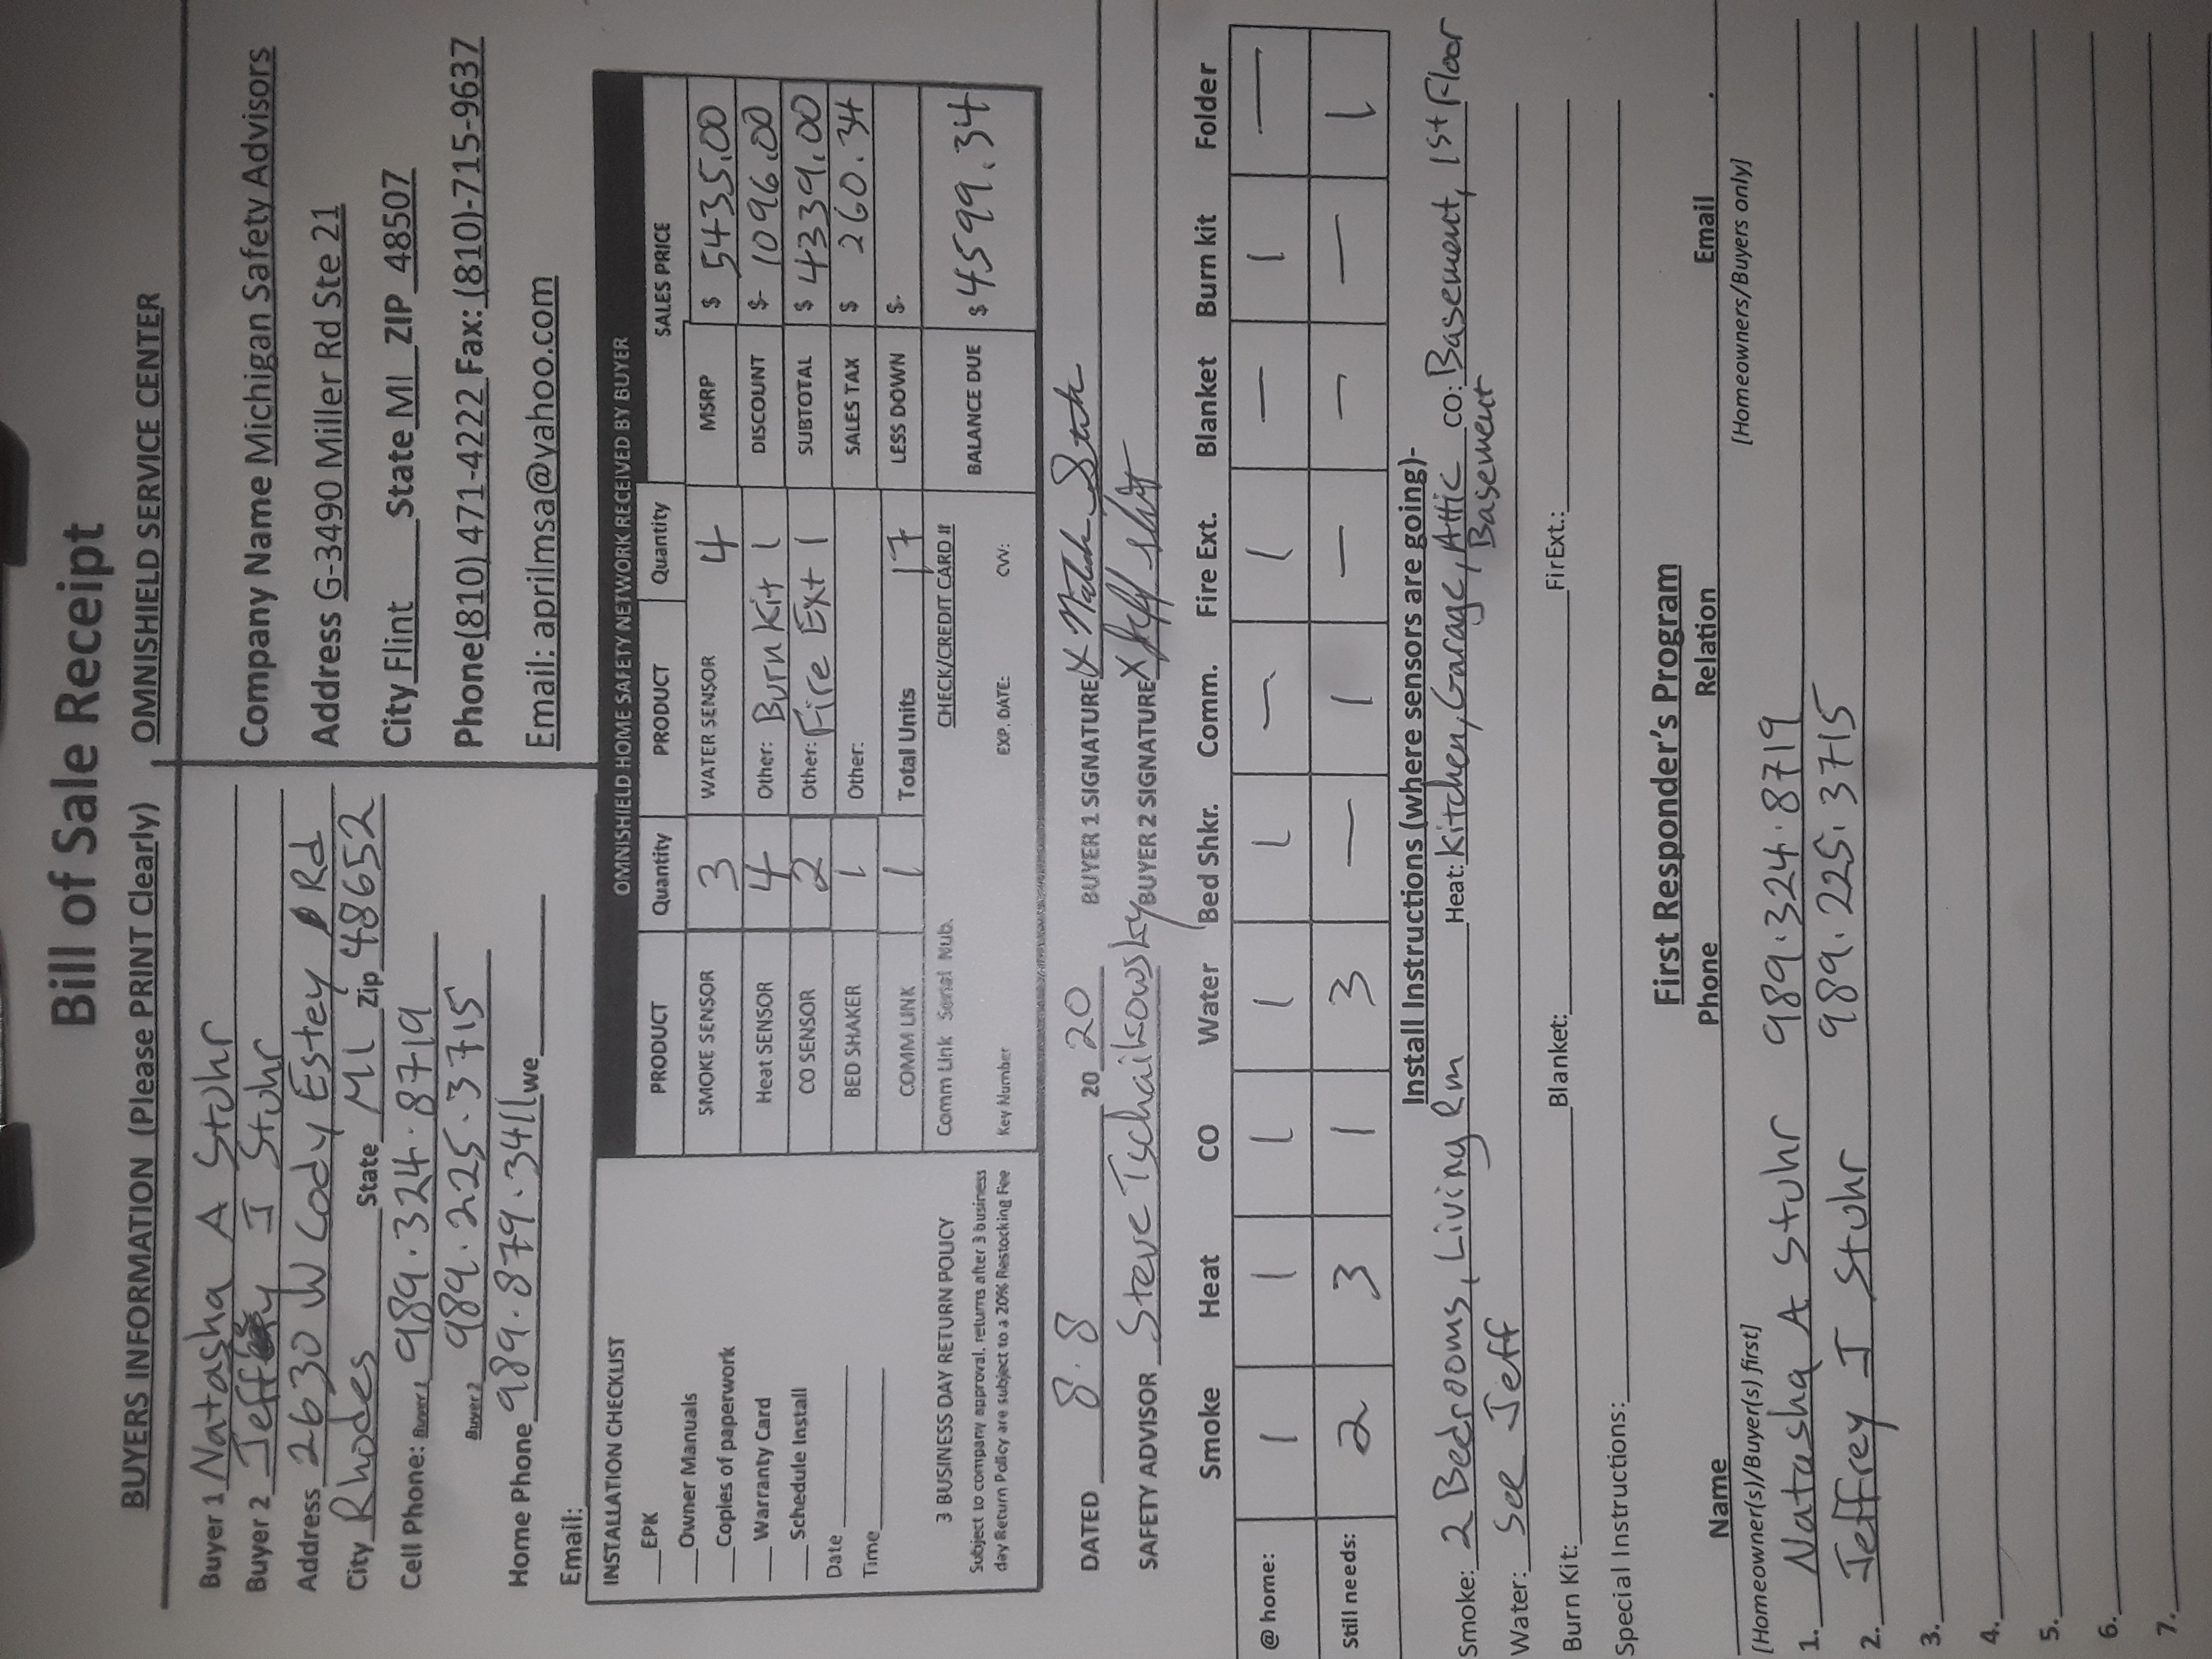 Bill of Sale Receipt
BUYERS INFORMATION (Please PRINT Clearly)
Buyer 1 Natasha A Stohr
Buyer 2 Jeffrey J Stohr
Address 2630 W Cody Estey Rd
City Rhodes State MI Zip 48652
Cell Phone: Buyer 1 989.324.8719
Buyer 2 989.225.3715
Home Phone 989.879.3411 we
Email:
OMNISHIELD SERVICE CENTER
Company Name Michigan Safety Advisors
Address G-3490 Miller Rd Ste 21
City Flint State MI ZIP 48507
Phone(810) 471-4222 Fax: (810)-715-9637
Email: aprilmsa@yahoo.com
INSTALLATION CHECKLIST
___EPK
___Owner Manuals
___Copies of paperwork
___Warranty Card
___Schedule Install
Date
Time
3 BUSINESS DAY RETURN POLICY
Subject to company approval, returns after 3 business
day Return Policy are subject to a 20% Restocking Fee
OMNISHIELD HOME SAFETY NETWORK RECEIVED BY BUYER
PRODUCT Quantity PRODUCT Quantity SALES PRICE
SMOKE SENSOR 3 WATER SENSOR 4 MSRP $ 5435.00
Heat SENSOR 4 Other: Burn Kit 1 DISCOUNT $- 1096.00
CO SENSOR 2 Other: Fire Ext 1 SUBTOTAL $ 4339.00
BED SHAKER 1 Other: SALES TAX $ 260.34
COMM LINK 1 Total Units 17 LESS DOWN $-
Comm Link Serial Nub. CHECK/CREDIT CARD # BALANCE DUE $ 4599.34
Key Number EXP. DATE: CVV:
DATED 8.8 20 20 BUYER 1 SIGNATURE X
SAFETY ADVISOR Steve Tychaikowsky BUYER 2 SIGNATURE X
Smoke Heat CO Water Bed Shkr. Comm. Fire Ext. Blanket Burn kit Folder
@ home: 1 1 1 1 1 — 1 — 1 —
Still needs: 2 3 1 3 — 1 — — — 1
Install Instructions (where sensors are going)-
Smoke: 2 Bedrooms, Living Rm Heat: Kitchen, Garage, Attic CO: Basement, 1st Floor
Basement
Water: See Jeff
Burn Kit: Blanket: FirExt.:
Special Instructions:
First Responder's Program
Name Phone Relation Email
[Homeowner(s)/Buyer(s) first] [Homeowners/Buyers only]
1. Natasha A Stohr 989.324.8719
2. Jeffrey J Stohr 989.225.3715
3.
4.
5.
6.
7.